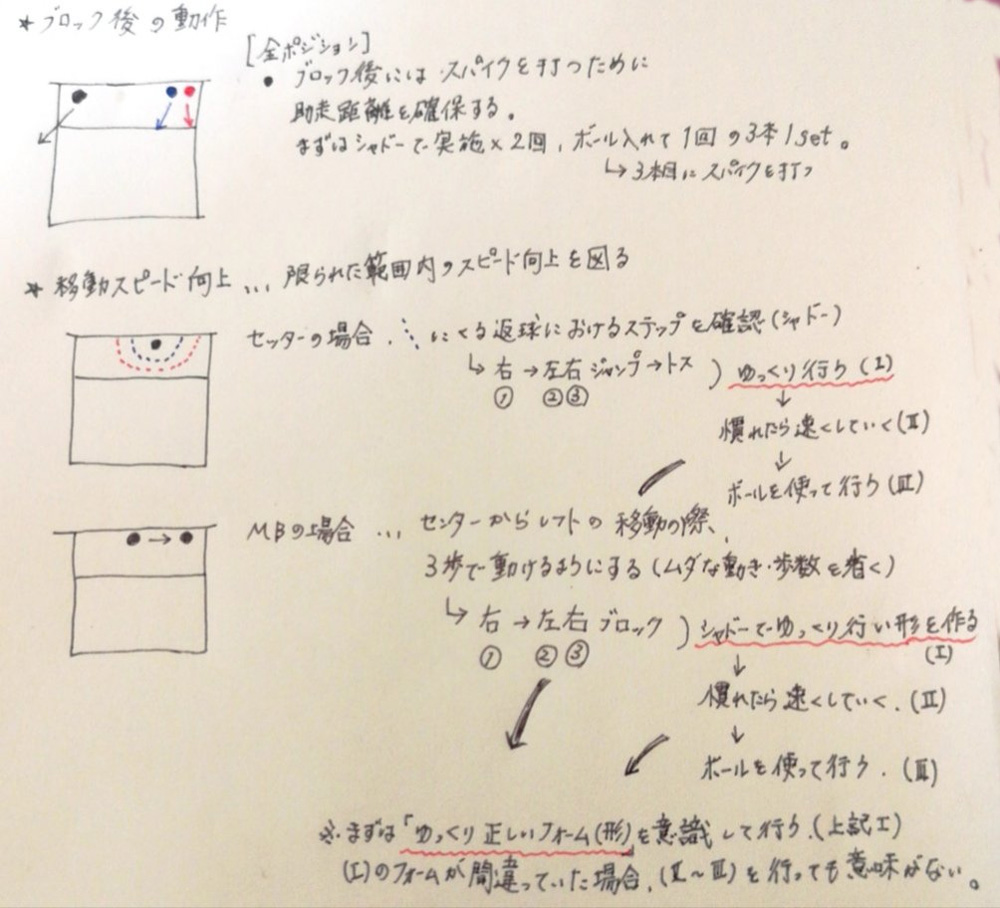 * ブロック後の動作
[全ポジション]
● ブロック後には スパイクを打つために
助走距離を確保する。
まずはシャドーで実施×2回、ボール入れて1回の3本/set。
↳3本目にスパイクを打つ
* 移動スピード向上 ... 限られた範囲内のスピード向上を図る
セッターの場合. にくる返球におけるステップを確認(シャドー)
↳ 右 → 左右 ジャンプ → トス ) ゆっくり行う (Ⅰ)
① ②③
↓
慣れたら速くしていく(Ⅱ)
↓
ボールを使って行う(Ⅲ)
MBの場合 ... センターからレフトの移動の際、
3歩で動けるようにする(ムダな動き・歩数を省く)
↳ 右 → 左右 ブロック ) シャドーでゆっくり行い形を作る
① ②③ (Ⅰ)
↓
慣れたら速くしていく. (Ⅱ)
↓
ボールを使って行う. (Ⅲ)
※. まずは「ゆっくり正しいフォーム(形)を意識して行う.(上記Ⅰ)
(Ⅰ)のフォームが間違っていた場合、(Ⅱ~Ⅲ)を行っても意味がない。